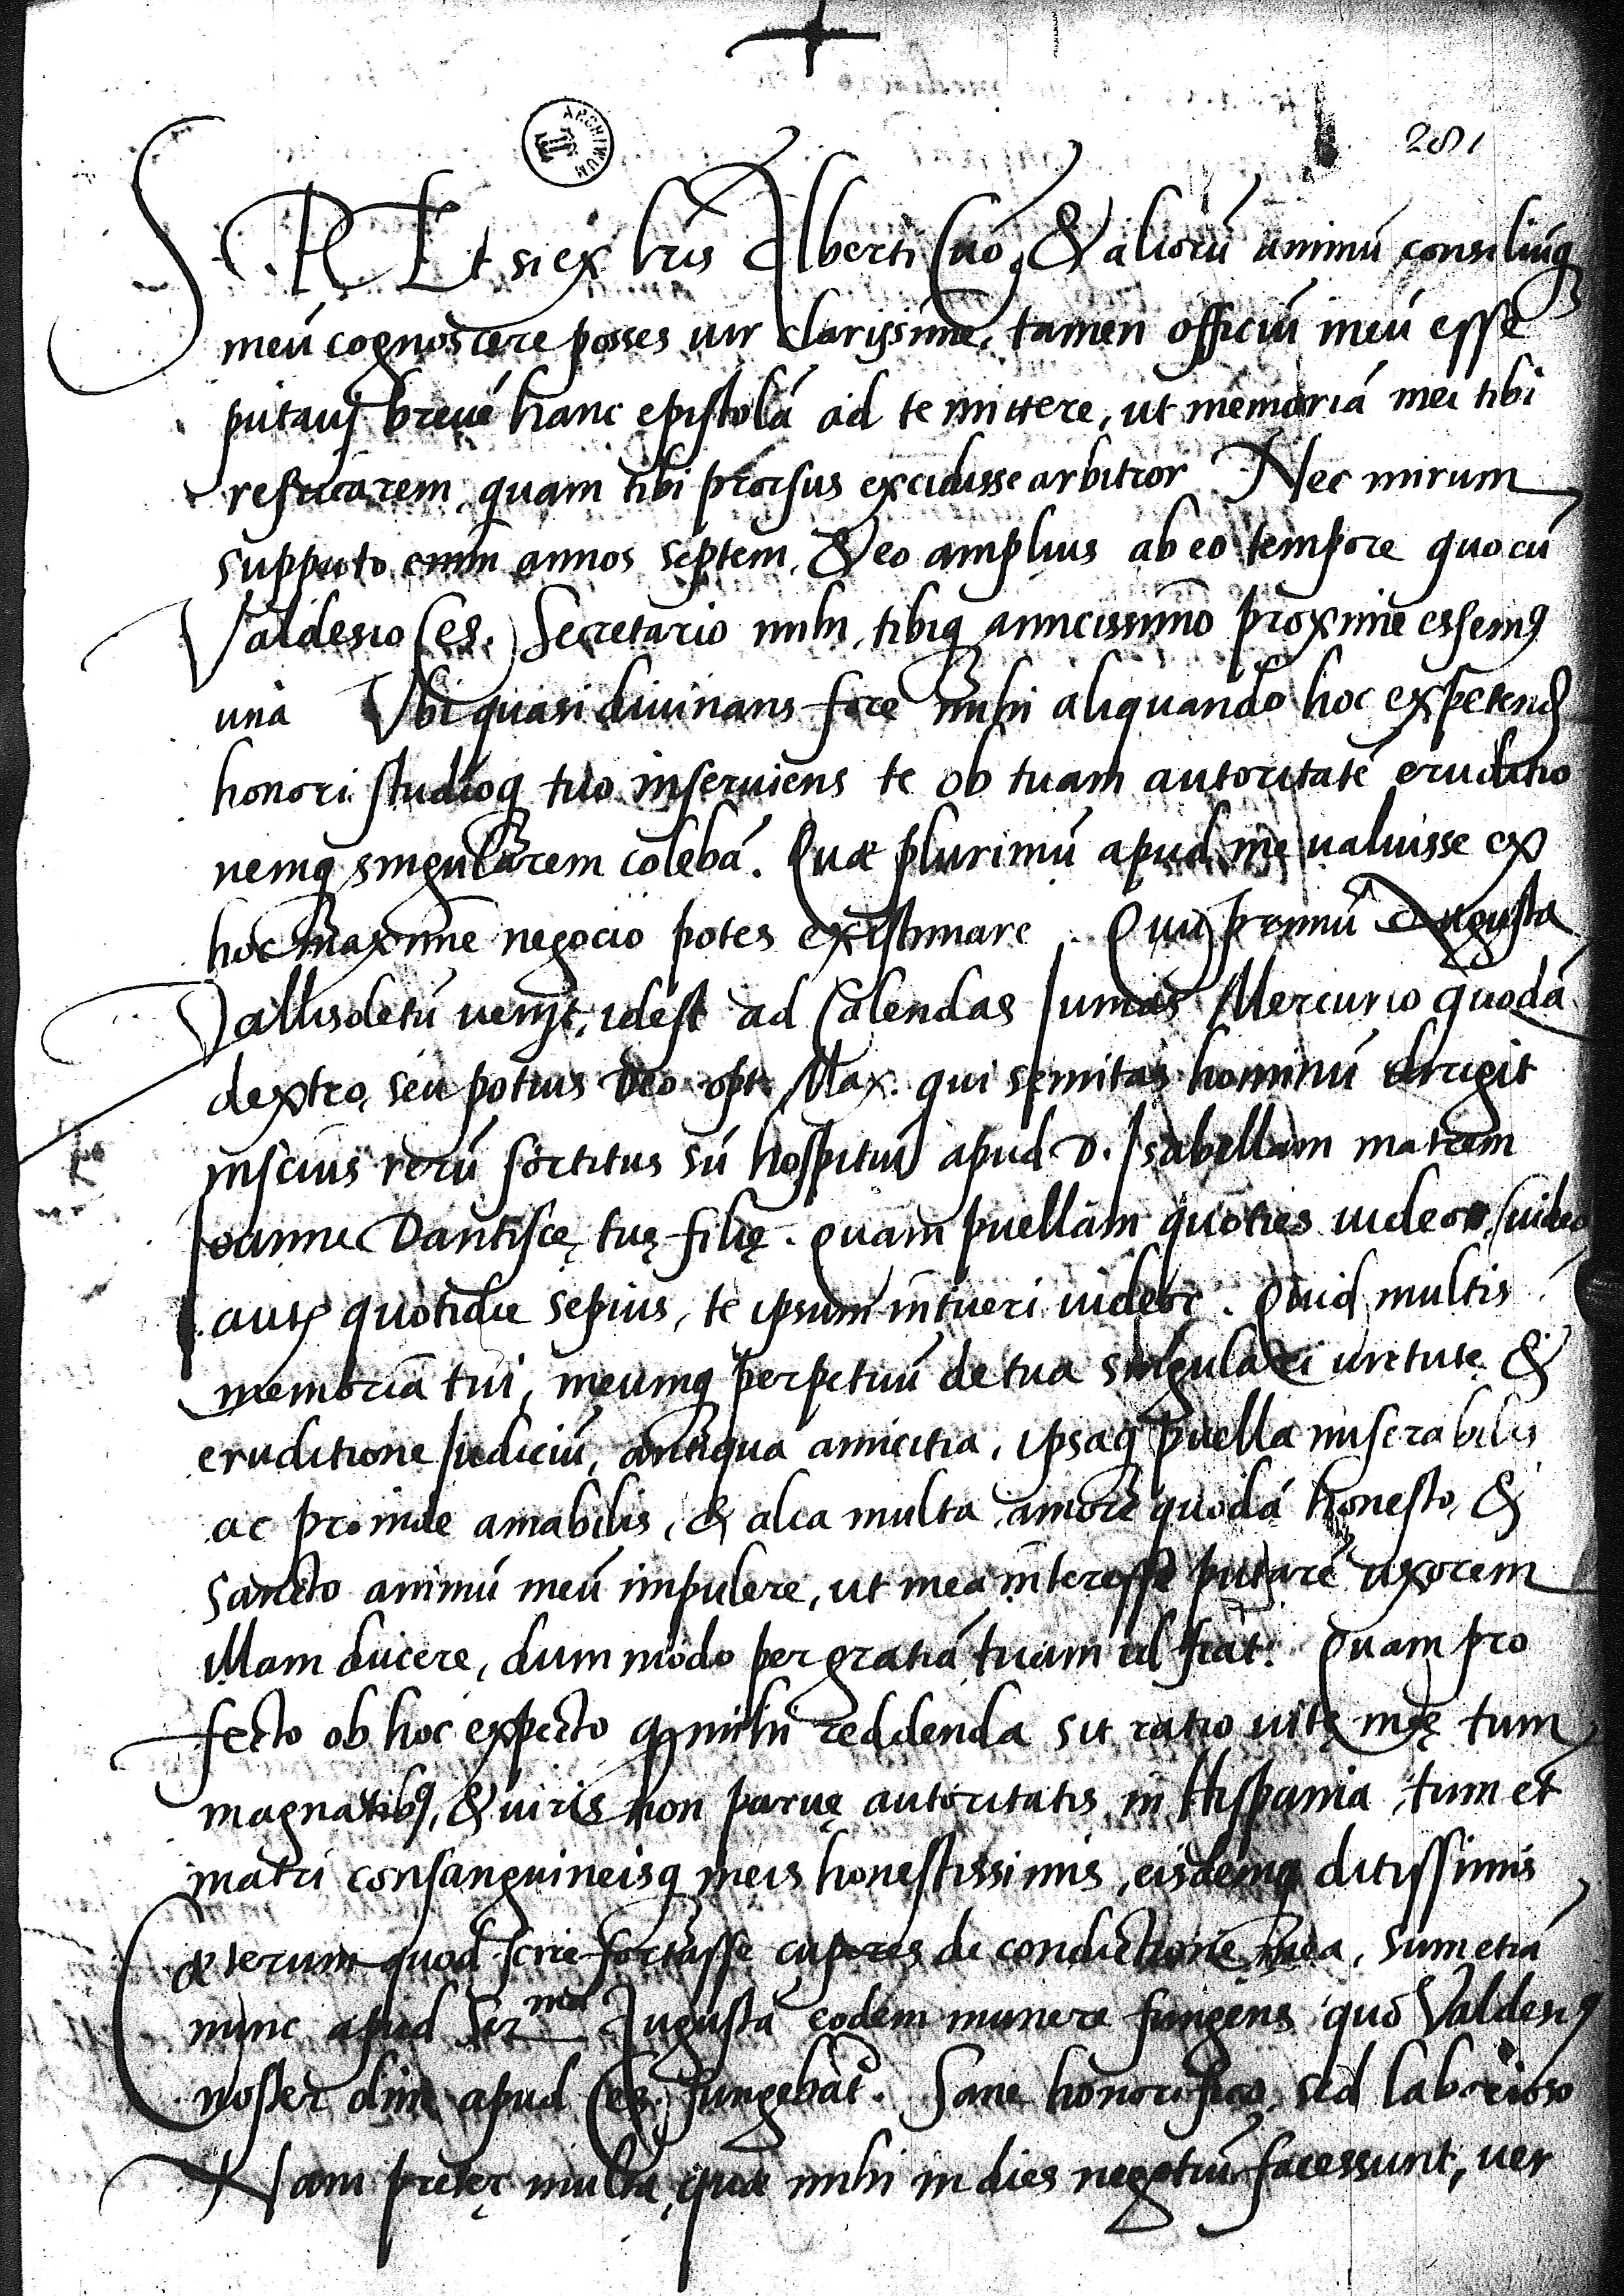 281
ARCHIWUM
S. R. Etsi ex lr̃is Alberti Cuõ, & aliorũ animũ consiliũq
meũ cognoscere posses uir clarissime, tamen officiũ meũ esse
putaui breuẽ hanc epistolã ad te mittere, ut memoriã mei tibi
refricarem, quam tibi prorsus excidisse arbitror Nec mirum
supputo enim annos septem, & eo amplius ab eo tempore quo cũ
Valdesio Ces. Secretario mihi, tibiq amicissimo proxime essemꝯ
una Vbi quasi diuinans fore mihi aliquando hoc expetend
honori studioq tuo inseruiens te ob tuam autoritatẽ eruditio
nemq singularem colebã. Quæ plurimũ apud me ualuisse ex
hoc maxime negocio potes existimare. Quũ primũ Augusta
Vallisoletũ uenit, idest ad Calendas Iunias Mercurio quodã
dextro, seu potius Deo opt. Max. qui semitas hominũ dirigit
inscius rerũ sortitus sũ hospitiũ apud D. Isabellam matrem
Ioannę Dantiscę, tuę filię. Quam puellam quoties uideo, uideo
autẽ quotidie sepius, te ipsum intueri uideor. Quid multis
memoria tui, meumq perpetuũ de tua singulari uirtute &
eruditione iudiciũ, antiqua amicitia, ipsaq puella miserabilis
ac proinde amabilis, & alia multa amore quodã honesto, &
sancto animũ meũ impulere, ut mea interesse putarẽ uxorem
illam ducere, dum modo per gratiã tuam id fiat. Quam pro
fecto ob hoc expecto q mihi reddenda sit ratio uitę męę tum
magnatibꝯ, & uiris non paruę autoritatis in Hispania, tum et
matri consanguineisq meis honestissimis, eisdemq ditissimis
Cæterum quod scire fortasse cuperes de condictione mea, sum etiã
nunc apud Ser<sup>mã</sup> Augustã eodem munere fungens quo Valdesiꝯ
noster olim apud Ces. fungebat. Sane honorifico, sed laborioso
Nam preter multa, quæ mihi in dies negotiũ facessunt, uer